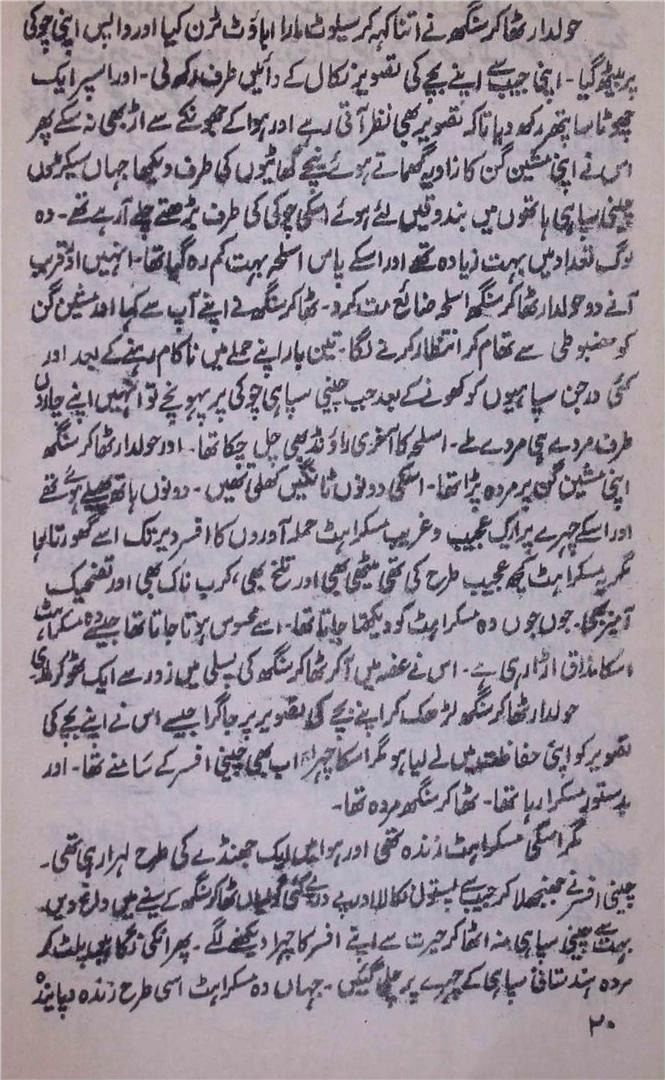 حولدار ٹھاکر سنگھ نے اتنا کہہ کر سیلوٹ مارا اباؤٹ ٹرن کیا اور واپس اپنی چوکی
پر بیٹھ گیا۔ اپنی جیب سے اپنے بچے کی تصویر نکال کے دائیں طرف رکھ لی۔ اور اسپر ایک
چھوٹا سا پتھر رکھ دیا تاکہ تصویر بھی نظر آتی رہے اور ہوا کے جھونکے سے اڑ بھی نہ سکے پھر
اس نے اپنی مشین گن کا زاویہ گھماتے ہوئے نیچے گھاٹیوں کی طرف دیکھا جہاں سیکڑوں
چینی سپاہی ہاتھوں میں بندوقیں لئے ہوئے اسکی چوکی کی طرف بڑھتے چلے آرہے تھے۔ وہ
لوگ تعداد میں بہت زیادہ تھے اور اسکے پاس اسلحہ بہت کم رہ گیا تھا۔ انہیں اور قریب
آنے دو حولدار ٹھاکر سنگھ اسلحہ ضائع مت کرو۔ ٹھاکر سنگھ نے اپنے آپ سے کہا اور مشین گن
کو مضبوطی سے تھام کر انتظار کرنے لگا۔ تین بار اپنے حملے میں ناکام رہنے کے بعد اور
کئی درجن سپاہیوں کو کھونے کے بعد جب چینی سپاہی چوکی پر پہونچے تو انہیں اپنے چاروں
طرف مردے ہی مردے ملے۔ اسلحہ کا آخری راؤنڈ بھی چل چکا تھا۔ اور حولدار ٹھاکر سنگھ
اپنی مشین گن پر مردہ پڑا تھا۔ اسکی دونوں ٹانگیں کھلی تھیں۔ دونوں ہاتھ پھیلے ہوئے تھے
اور اسکے چہرے پر ایک عجیب و غریب مسکراہٹ حملہ آوروں کا افسر دیر تک اسے گھورتا رہا
مگر یہ مسکراہٹ کچھ عجیب طرح کی تھی میٹھی بھی اور تلخ بھی، کرب ناک بھی اور تضحیک
آمیز بھی۔ جوں جوں وہ مسکراہٹ کو دیکھتا جاتا تھا۔ اسے محسوس ہوتا جاتا تھا جیسے وہ مسکراہٹ
اسکا مذاق اڑا رہی ہے۔ اس نے غصہ میں آکر ٹھاکر سنگھ کی پسلی میں زور سے ایک ٹھوکر ماری
حولدار ٹھاکر سنگھ لڑھک کر اپنے بچے کی تصویر پر جا گرا جیسے اس نے اپنے بچے کی
تصویر کو اپنی حفاظت میں لے لیا ہو مگر اسکا چہرا اب بھی چینی افسر کے سامنے تھا۔ اور
بدستور مسکرا رہا تھا۔ ٹھاکر سنگھ مردہ تھا۔
مگر اسکی مسکراہٹ زندہ تھی اور ہوا میں ایک جھنڈے کی طرح لہرا رہی تھی۔
چینی افسر نے جھنجھلا کر جیب سے پستول نکالا اور پے درپے کئی گولیاں ٹھاکر سنگھ کے سینے میں داغ دیں۔
بہت سے چینی سپاہی منہ اٹھا کر حیرت سے اپنے افسر کا چہرا دیکھنے لگے۔ پھر انکی نگاہیں پلٹ کر
مردہ ہندستانی سپاہی کے چہرے پر چلی گئیں۔ جہاں وہ مسکراہٹ اسی طرح زندہ و پایندہ
۲۰